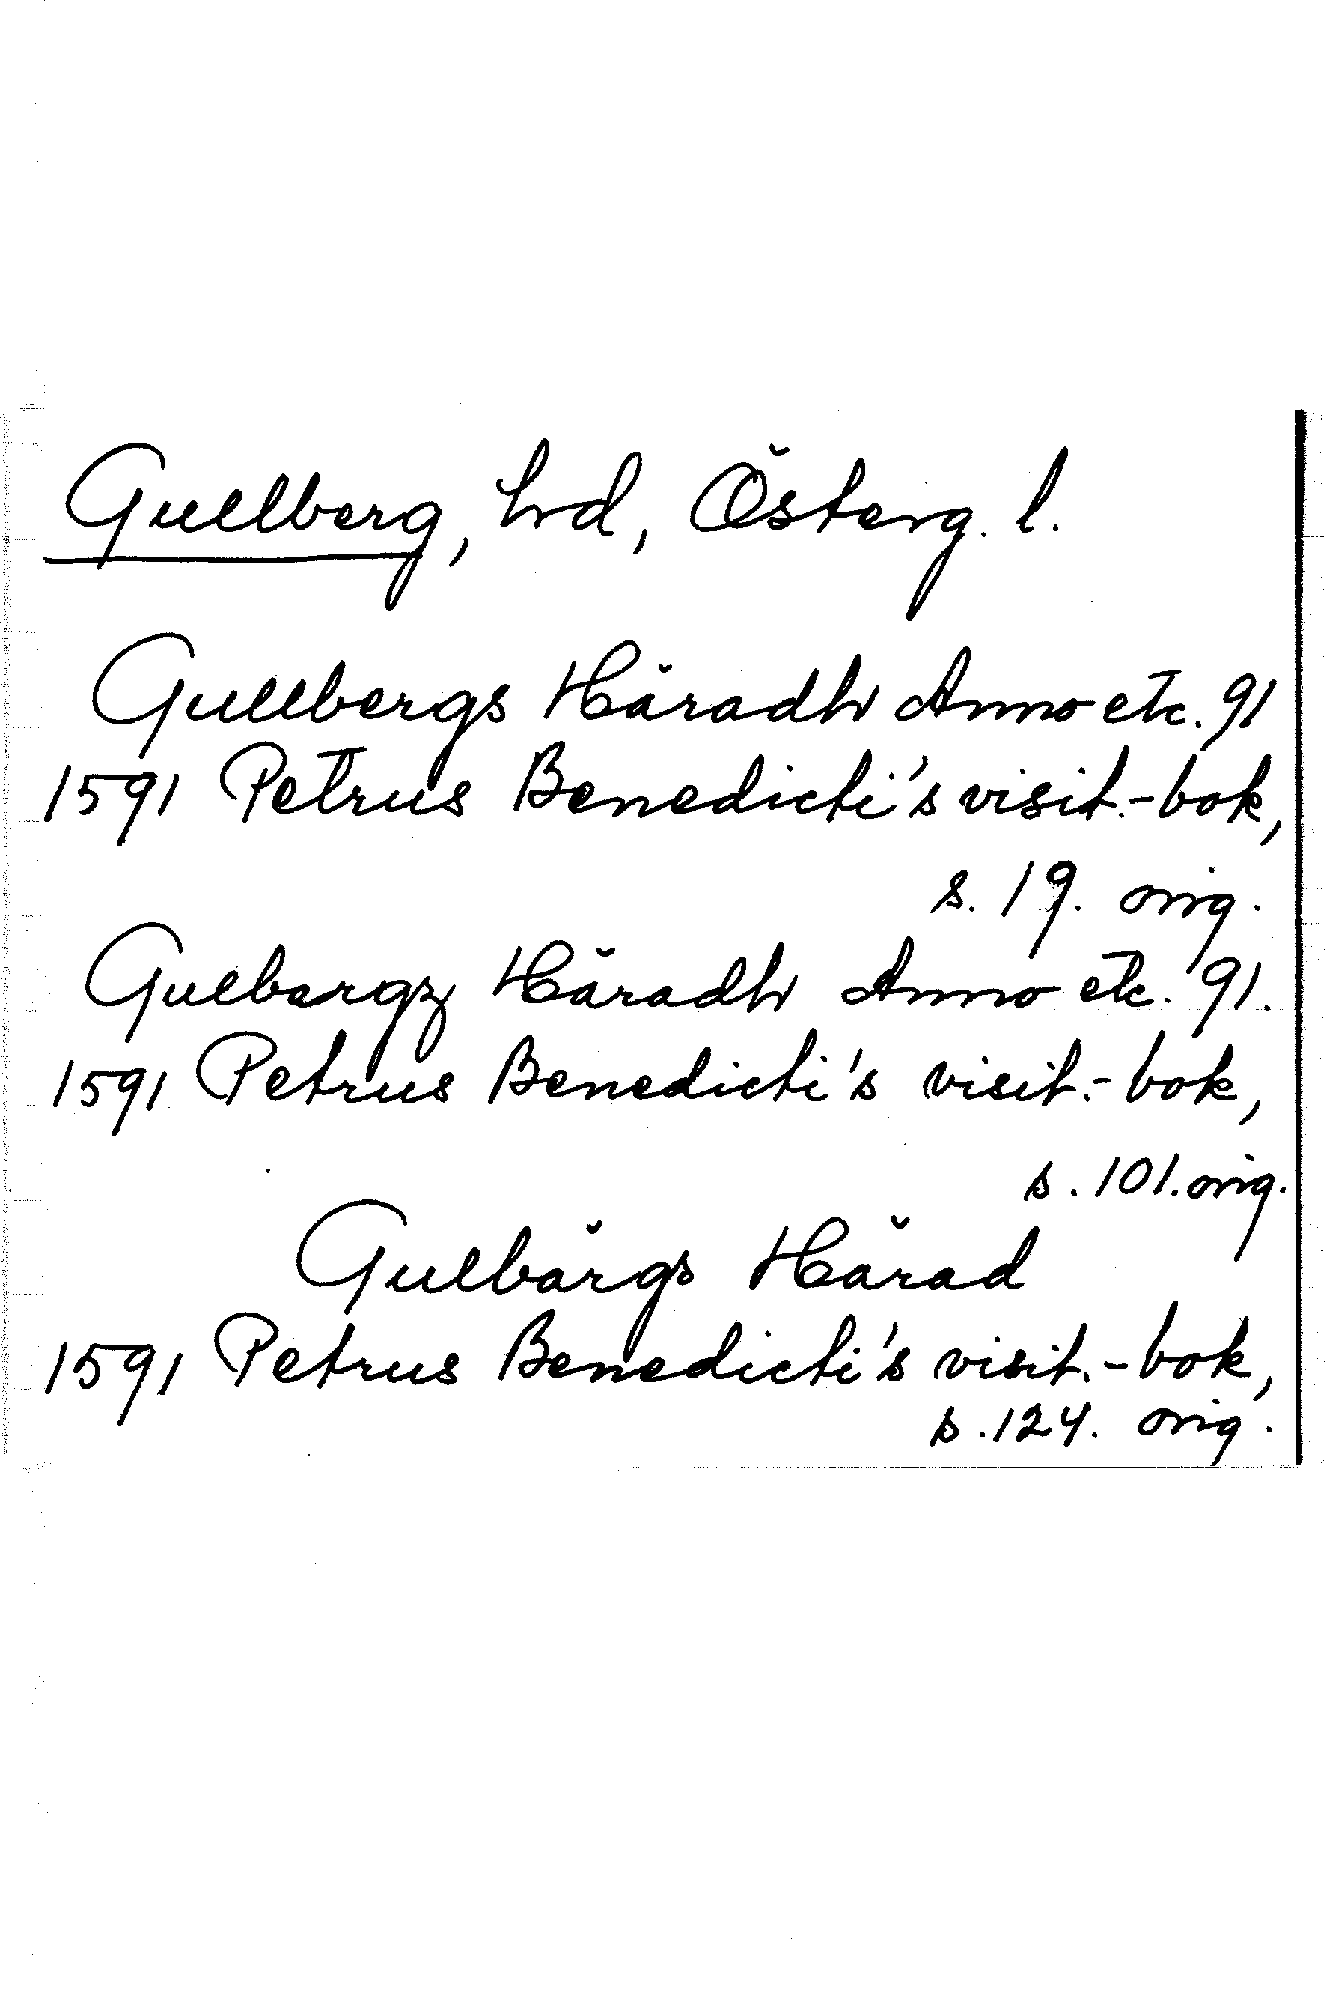 Gullberg, hrd, Österg. l.
Gullbergs Häradh Anno etc. 91
1591 Petrus Benedicti's visit.-bok,
s. 19. orig.
Gulbergz Häradh Anno etc. 91.
1591 Petrus Benedicti's visit.-bok,
s. 101. orig.
Gulbärgs Härad
1591 Petrus Benedicti's visit.-bok,
s. 124. orig.